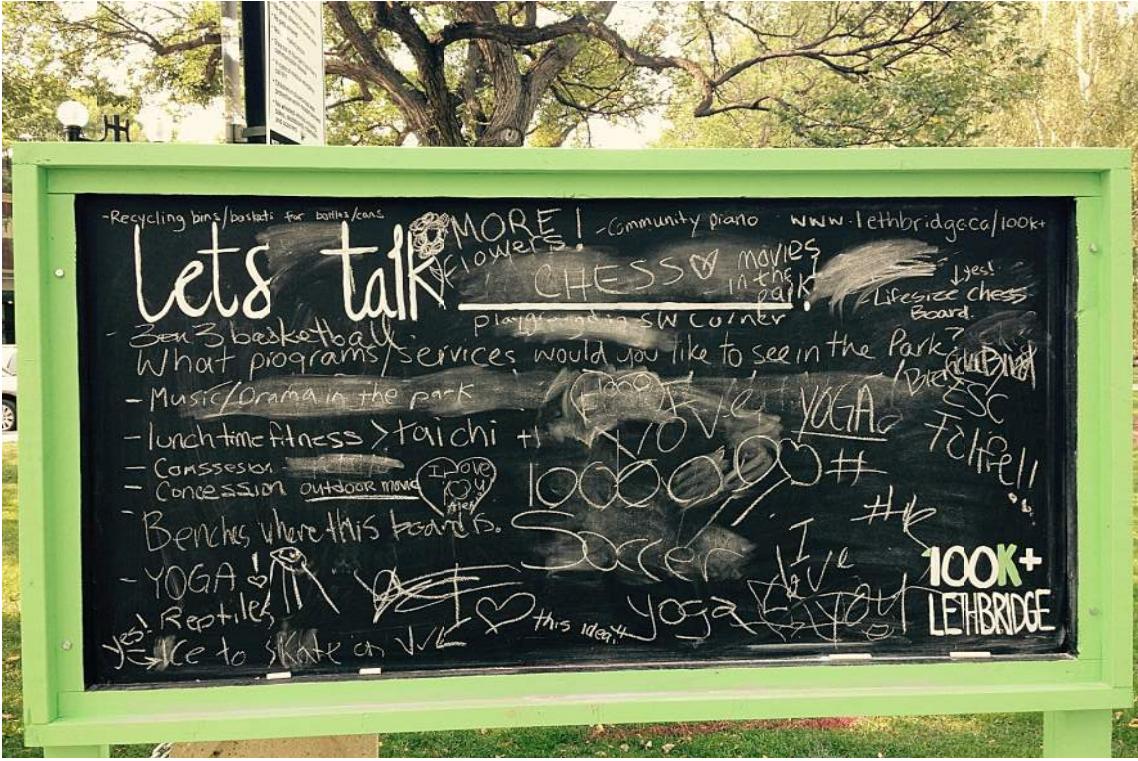 -Recycling bins/baskets for bottles/cans
MORE!
flowers!
-Community piano
www.lethbridge.ca/100k+
Lets talk
CHESS
movies
in the
park!
yes!
Lifesize chess
Board.
playground in SW corner
- 3 on 3 basketball
What programs/services would you like to see in the Park?
- Music/Drama in the park
YOGA
ESC
- lunch time fitness > tai chi +1
- Comssesion
- Concession outdoor movie
I love
U
- Benches where this board is.
1000000
#
Soccer
- YOGA!
Reptiles
yes!
Ice to skate on
I ♡ this idea!!
yoga
I
100K+
LETHBRIDGE